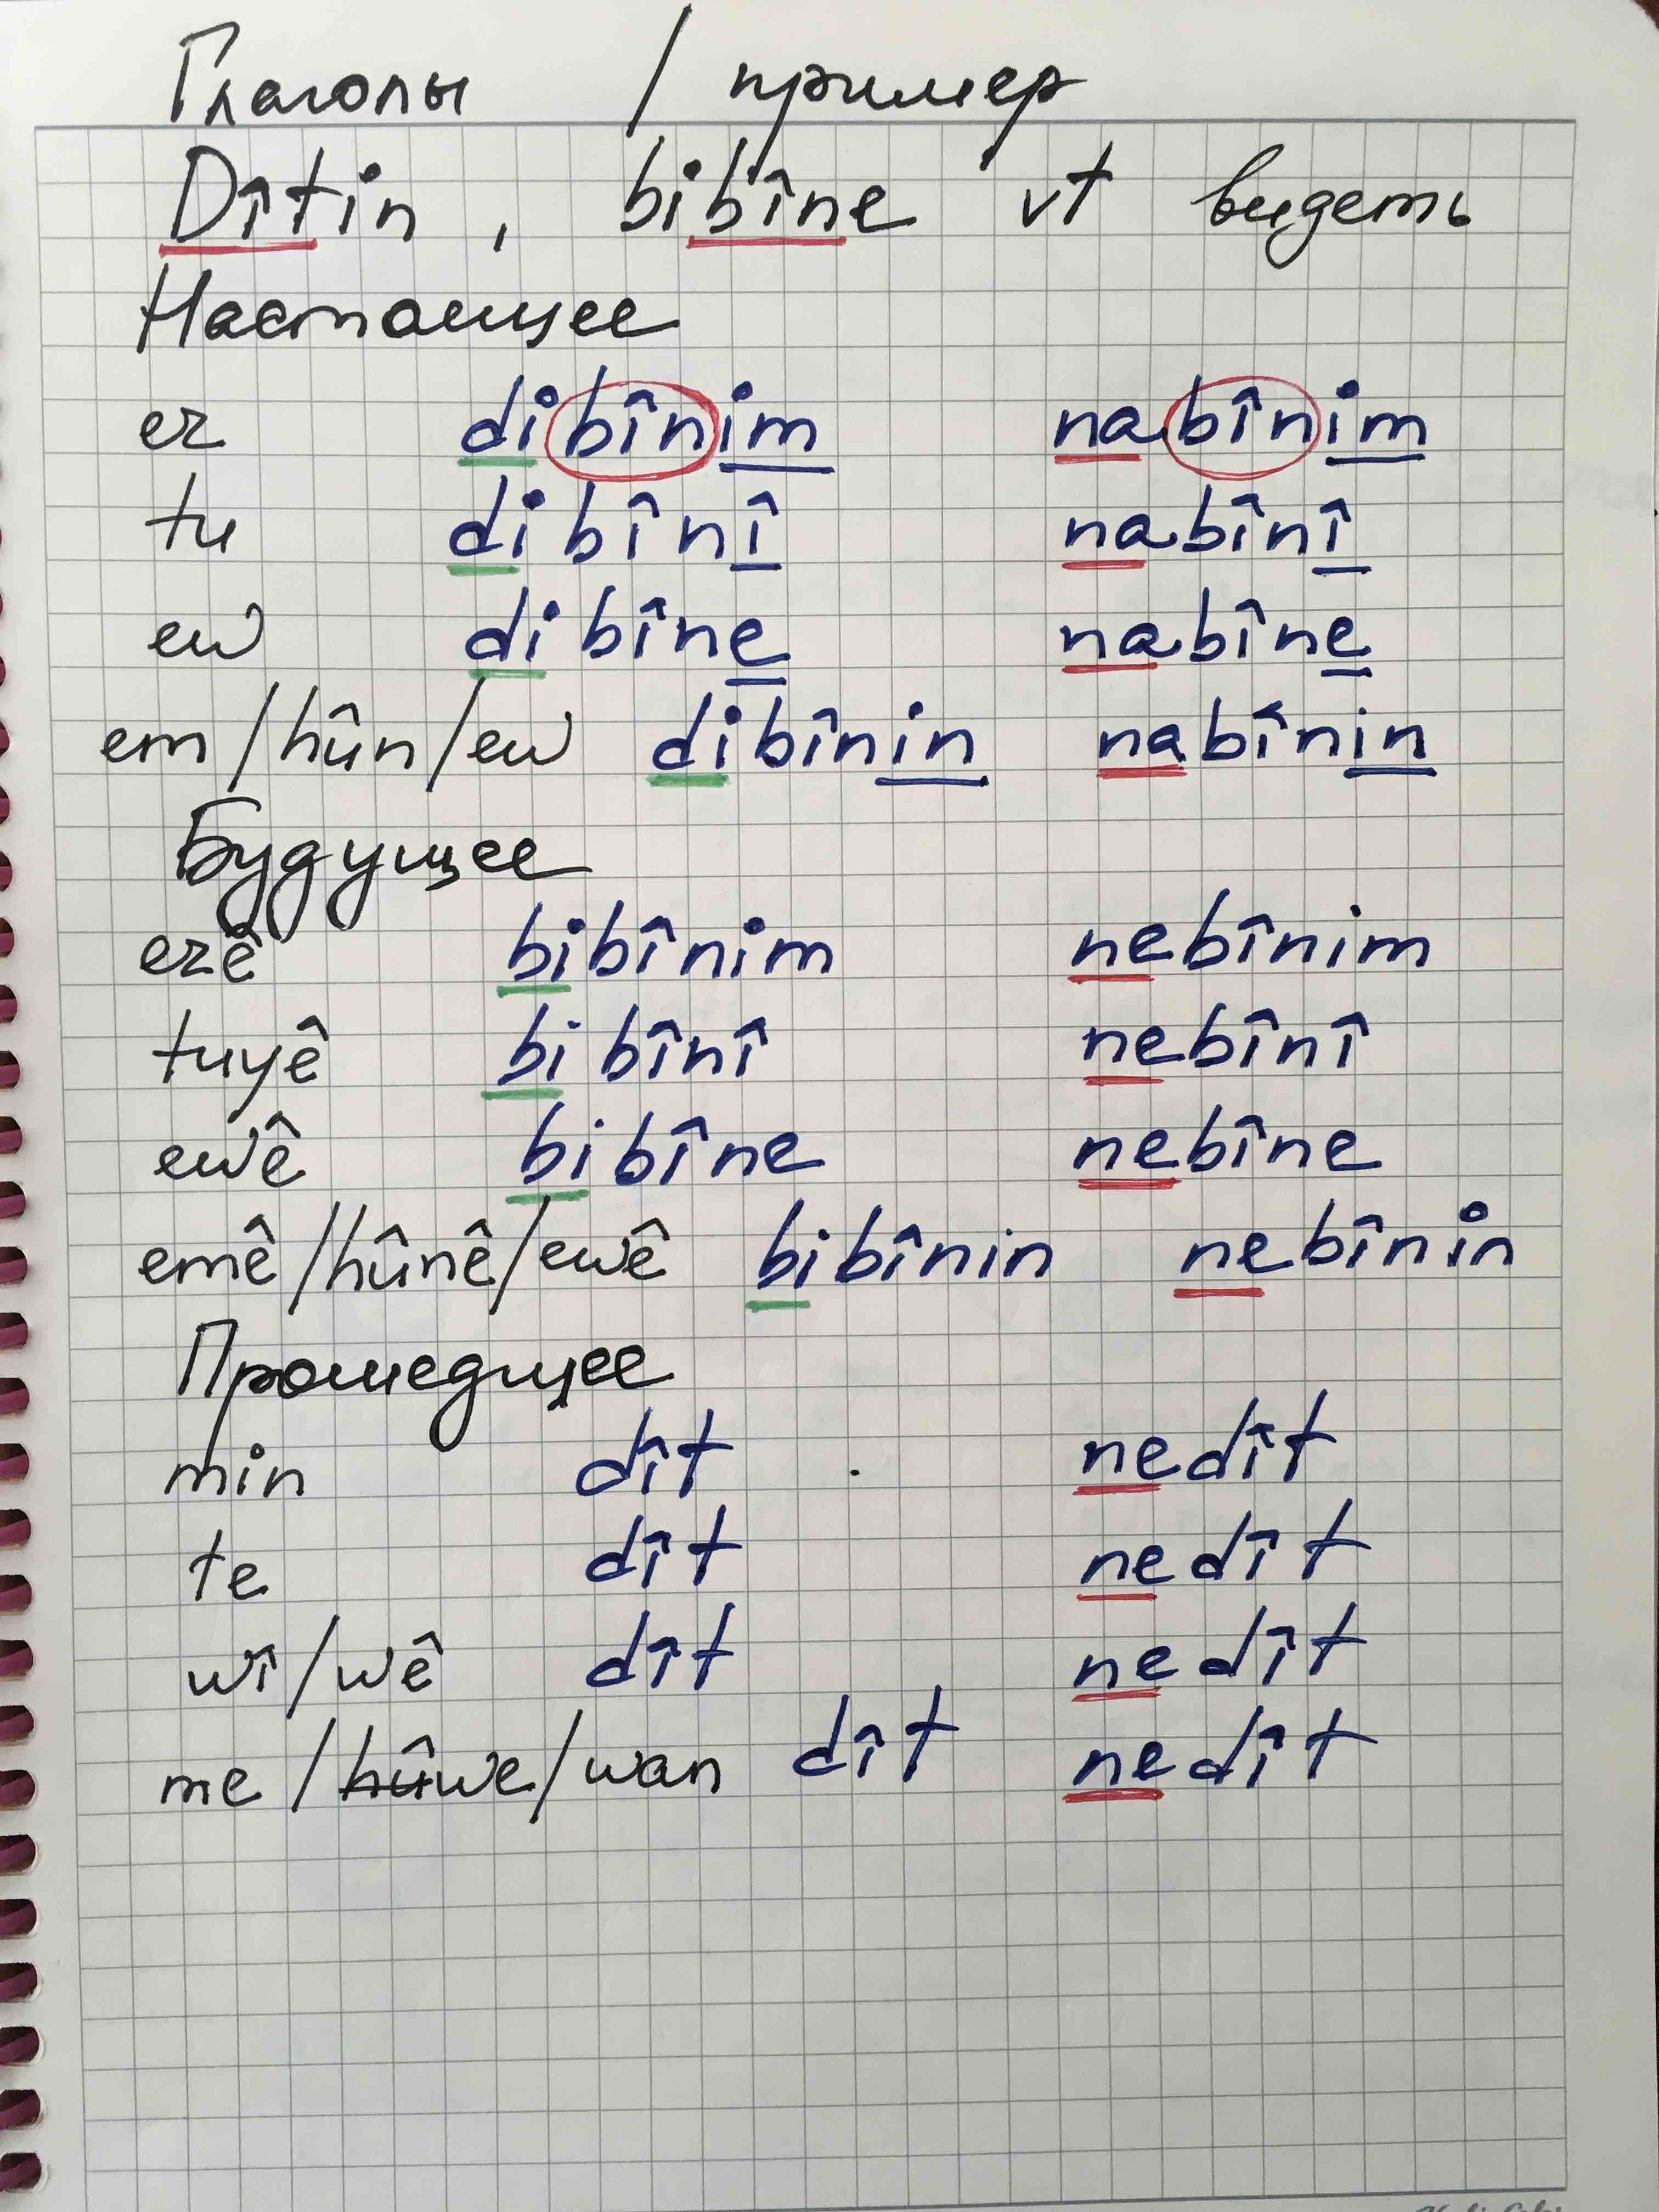 Глаголы / пример
Dîtin, bibîne vt видеть
Настоящее
ez dibînim nabînim
tu dibînî nabînî
ew dibîne nabîne
em/hûn/ew dibînin nabînin
Будущее
ezê bibînim nebînim
tuyê bibînî nebînî
ewê bibîne nebîne
emê/hûnê/ewê bibînin nebînin
Прошедщее
min dît nedît
te dît nedît
wî/wê dît nedît
me/hûwe/wan dît nedît